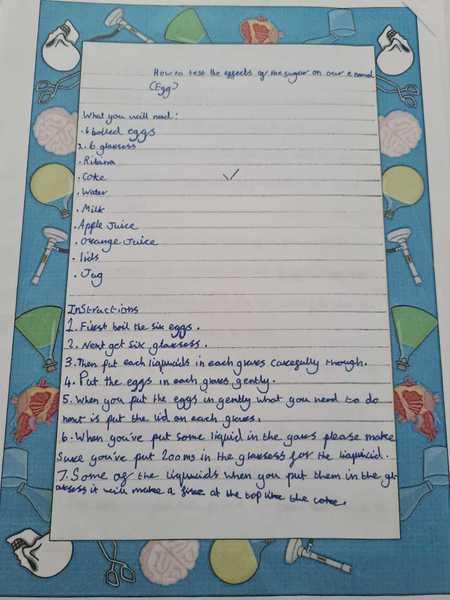 How to test the effects of the sugar on our enamel
(Egg)
What you will need:
• 6 boiled eggs
2. 6 glassess
• Ribana
• Coke
• Water
• Milk
• Apple Juice
• orange Juice
• lids
• Jug
Instructions
1. Firest boil the six eggs.
2. Next get six glassess.
3. Then put each liquids in each glass carefully though.
4. Put the eggs in each glass gently.
5. When you put the eggs in gently what you need to do
next is put the lid on each glass.
6. When you've put some liquid in the please make
sure you've put 200ms in the glassess for the liquid.
7. Some of the liquids when you put them in the gl
assess it will make a at the top like the coke.